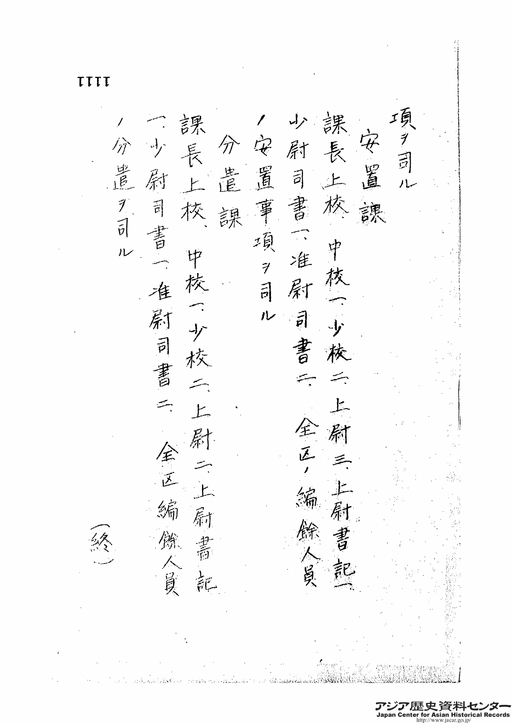 項ヲ司ル
安置課
課長上校、中校一、少校二、上尉三、上尉書記一、
少尉司書一、准尉司書二、全区ノ編餘人員
ノ安置事項ヲ司ル
分遣課
課長上校、中校一、少校二、上尉二、上尉書記
一、少尉司書一、准尉司書二、全区編餘人員
ノ分遣ヲ司ル
(終)
1111
アジア歴史資料センター
Japan Center for Asian Historical Records
http://www.jacar.go.jp